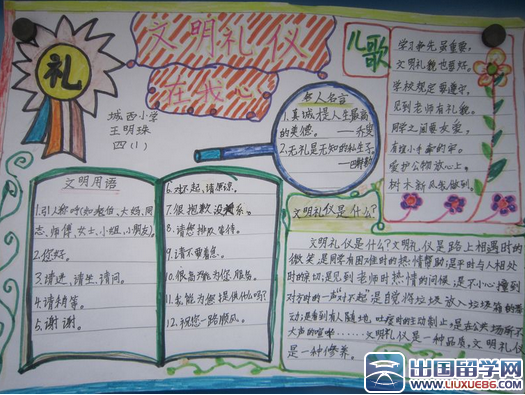 礼
文明礼仪
在我心
城西小学
王明珠
四(1)
儿歌
学习争先虽重要,
文明礼貌也要好。
学校规定要遵守,
见到老师有礼貌。
同学之间要友爱,
爱护公物放心上。
名人名言
1.真诚是人生最高
的美德。
——乔叟
2.无礼是无知的私生子。
文明用语
1.引人称呼(如叔伯、大妈、同
志、师傅、女士、小姐、小朋友)。
2.您好。
3.请进、请坐、请问。
4.请稍等。
5.谢谢。
6.对不起,请原谅。
7.很抱歉没关系。
8.请您排队等待。
9.请不要着急。
10.很高兴能为您服务。
11.我能为您提供什么吗?
12.祝您一路顺风。
文明礼仪是什么?
文明礼仪是什么?文明礼仪是路上相遇时的
微笑,是同学有困难时的热情帮助;是平时与人相处
时的亲切,是见到老师时热情的问候,是不小心撞到
对方时的一声“对不起”,是自觉将垃圾放入垃圾箱的举
动;是看到有人随地吐痰时的主动制止,是在公共场所不
大声的喧哗……文明礼仪是一种品质,文明礼仪
是一种修养。
出国留学网
WWW.LIUXUE86.COM